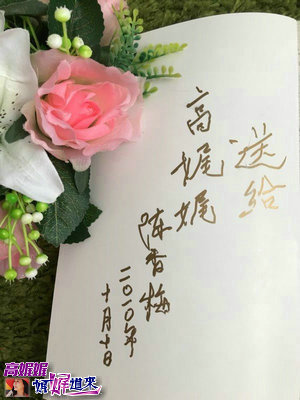 送给
高娓娓
陈香梅
二〇一〇年
十月十日
高娓娓
娓娓道来